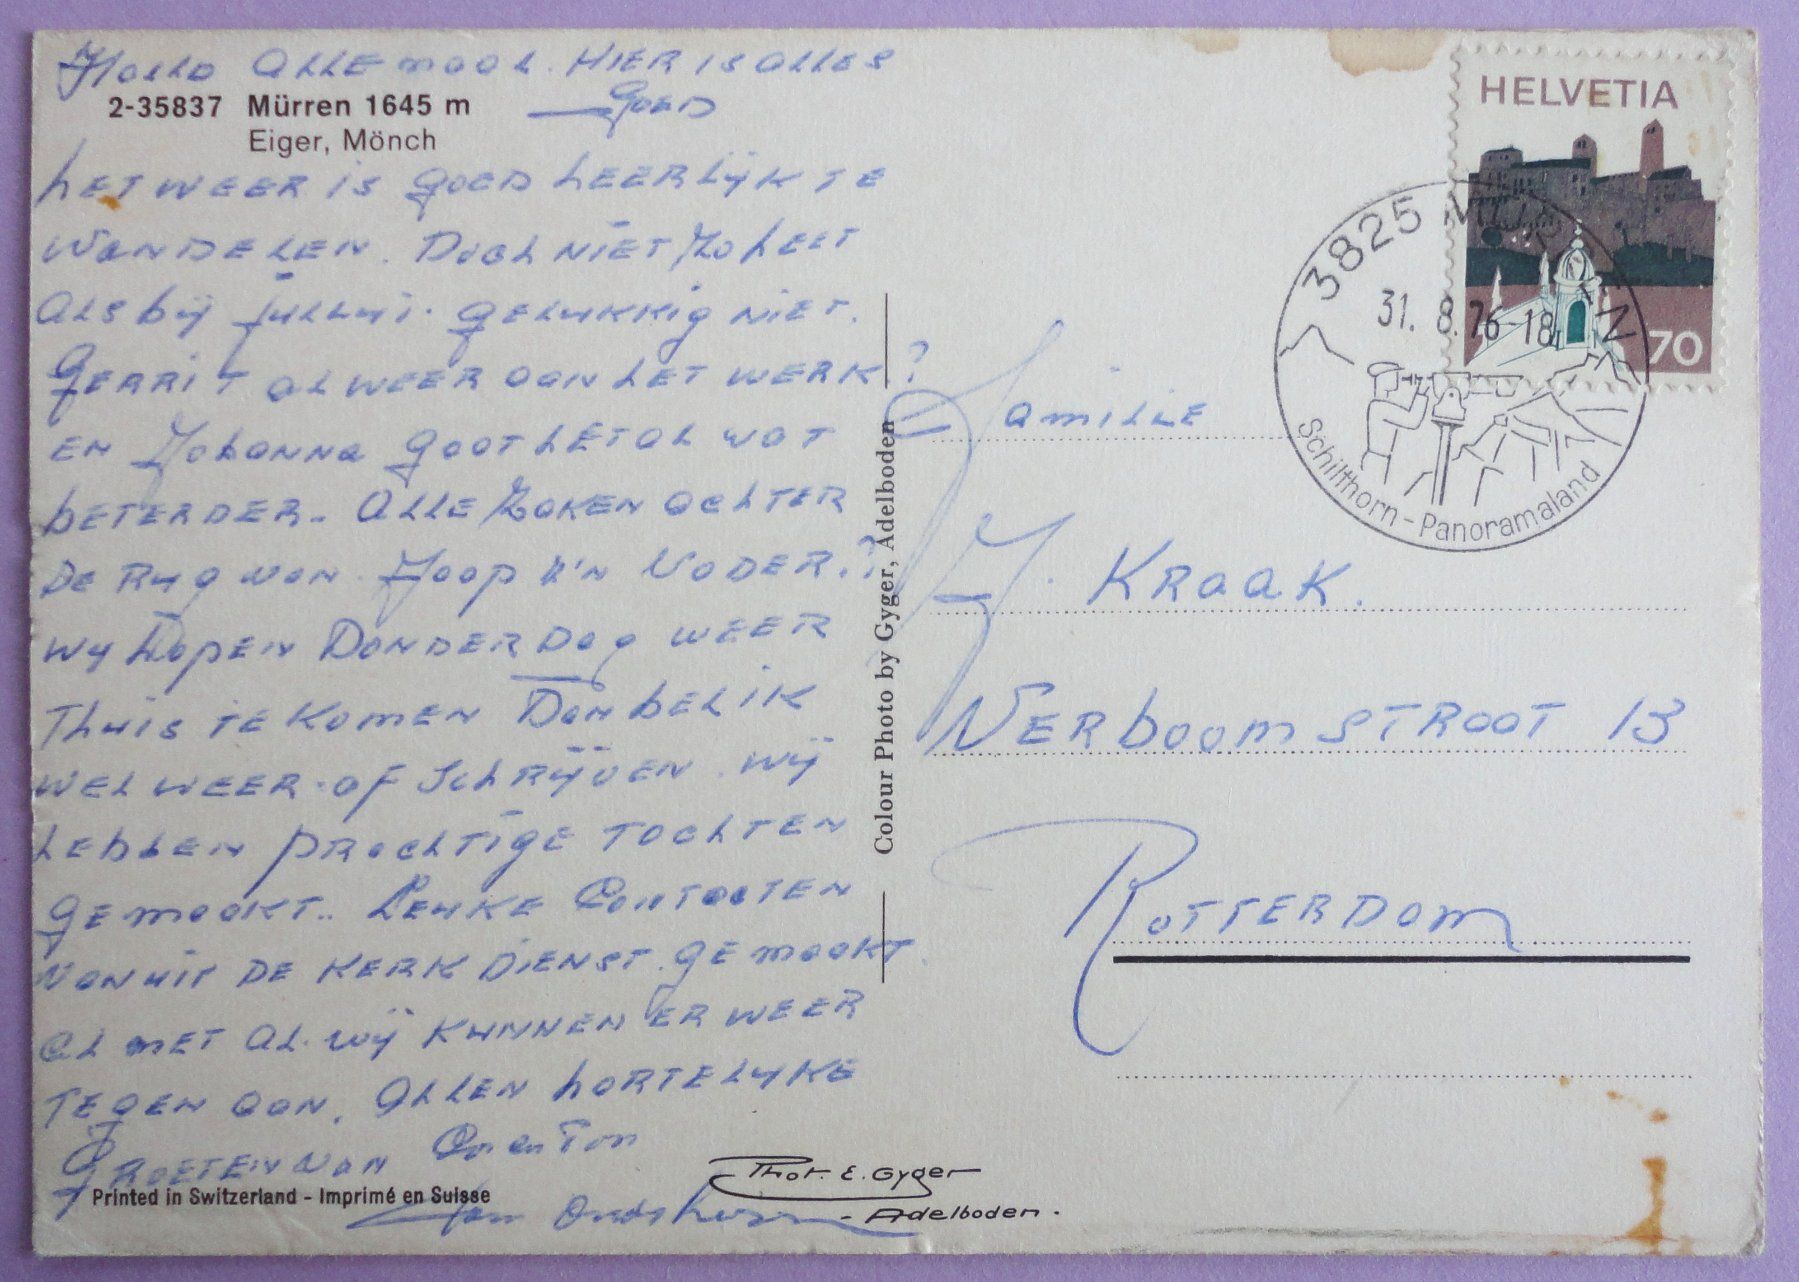 Hallo allemaal. Hier is alles
goed
2-35837 Mürren 1645 m
Eiger, Mönch
het weer is goed heerlijk te
wandelen. Doch niet zo heet
als bij jullui. gelukkig niet.
Gerrit al weer aan het werk?
en Johanna gaat het al wat
beterder. Alle zaken achter
de rug van Joop z'n vader.?
wy hopen Donderdag weer
Thuis te komen Dan bel ik
wel weer of schrijven. wij
hebben prachtige tochten
gemaakt.. Leuke contacten
vanuit de kerkdienst gemaakt.
al met al wij kunnen er weer
tegen aan. Allen hartelyke
groeten van en Ton
Printed in Switzerland - Imprimé en Suisse
Phot. E. Gyger
- Adelboden.
Colour Photo by Gyger, Adelboden
HELVETIA
70
3825 MÜRREN
31. 8. 76-18
Schilthorn - Panoramaland
Familie
J. Kraak.
Verboomstraat 13
Rotterdam